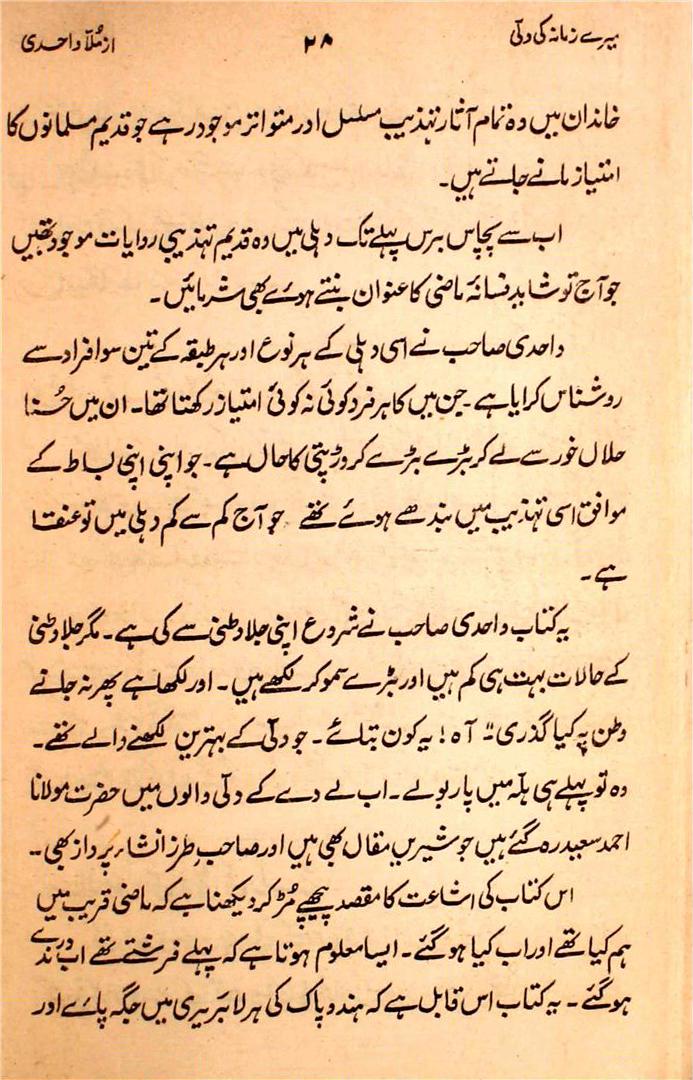 میرے زمانہ کی دلّی ۲۸ از مُلّا واحدی
خاندان میں وہ تمام آثار تہذیب مسلسل اور متواتر موجود رہے جو قدیم مسلمانوں کا
امتیاز مانے جاتے ہیں۔
اب سے پچاس برس پہلے تک دہلی میں وہ قدیم تہذیبی روایات موجود تھیں
جو آج تو شاید فسانۂ ماضی کا عنوان بنتے ہوئے بھی شرمائیں۔
واحدی صاحب نے اسی دہلی کے ہر نوع اور ہر طبقہ کے تین سو افراد سے
روشناس کرایا ہے۔ جن میں کا ہر فرد کوئی نہ کوئی امتیاز رکھتا تھا۔ ان میں حُسنا
حلال خور سے لے کر بڑے بڑے کروڑپتی کا حال ہے۔ جو اپنی اپنی بساط کے
موافق اسی تہذیب میں بندھے ہوئے تھے جو آج کم سے کم دہلی میں تو عنقا
ہے۔
یہ کتاب واحدی صاحب نے شروع اپنی جلاوطنی سے کی ہے۔ مگر جلاوطنی
کے حالات بہت ہی کم ہیں اور بڑے سمو کر لکھے ہیں۔ اور لکھا ہے پھر نہ جانے
وطن پہ کیا گذری" آہ! یہ کون بتلائے۔ جو دلّی کے بہترین لکھنے والے تھے۔
وہ تو پہلے ہی ہلّہ میں پار بولے۔ اب لے دے کے دلّی والوں میں حضرت مولانا
احمد سعید رہ گئے ہیں جو شیریں مقال بھی ہیں اور صاحبِ طرز انشاء پرداز بھی۔
اس کتاب کی اشاعت کا مقصد پیچھے مُڑ کر دیکھنا ہے کہ ماضی قریب میں
ہم کیا تھے اور اب کیا ہو گئے۔ ایسا معلوم ہوتا ہے کہ پہلے فرشتے تھے اب درندے
ہو گئے۔ یہ کتاب اس قابل ہے کہ ہند و پاک کی ہر لائبریری میں جگہ پائے اور